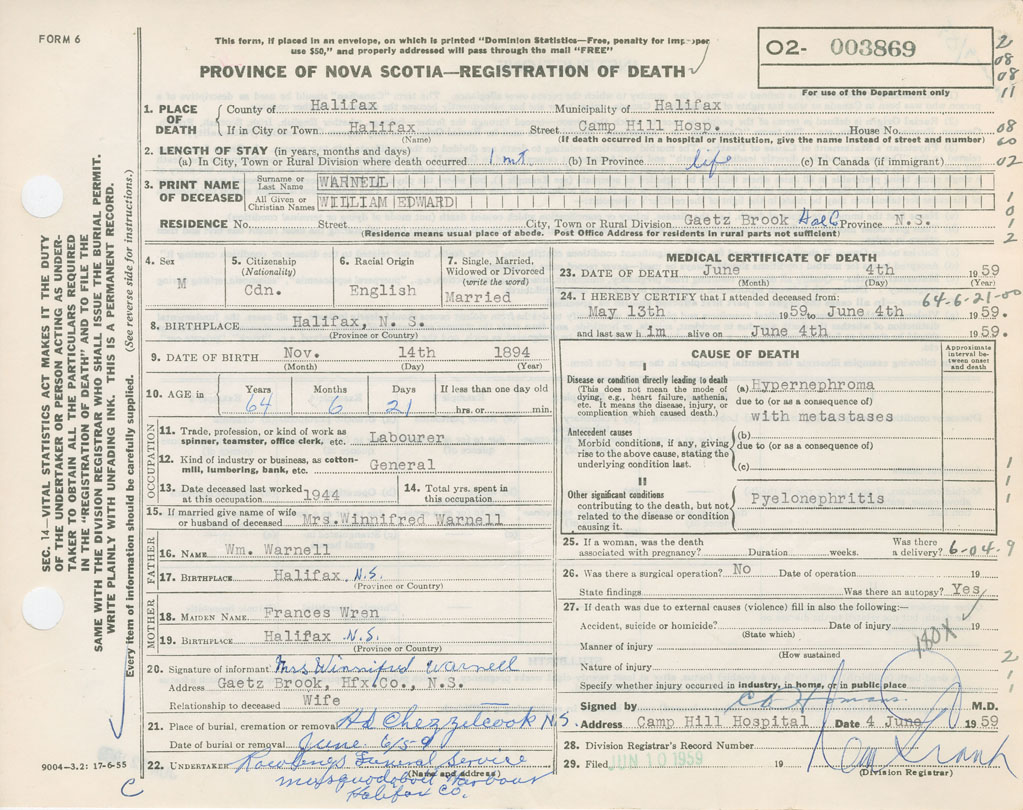 FORM 6
This form, if placed in an envelope, on which is printed "Dominion Statistics—Free, penalty for improper
use $50," and properly addressed will pass through the mail "FREE"
PROVINCE OF NOVA SCOTIA—REGISTRATION OF DEATH
O2- 003869
For use of the Department only
2
08
08
11
08
60
02
1
0
1
2
1. PLACE OF DEATH
County of Halifax Municipality of Halifax
If in City or Town Halifax Street Camp Hill Hosp. House No.
(Name) (If death occurred in a hospital or institution, give the name instead of street and number)
2. LENGTH OF STAY (in years, months and days)
(a) In City, Town or Rural Division where death occurred 1 mt. (b) In Province life (c) In Canada (if immigrant)
3. PRINT NAME OF DECEASED
Surname or Last Name WARNELL
All Given or Christian Names WILLIAM EDWARD
RESIDENCE No. Street City, Town or Rural Division Gaetz Brook Province N.S.
(Residence means usual place of abode. Post Office Address for residents in rural parts not sufficient)
4. Sex
M
5. Citizenship
(Nationality)
Cdn.
6. Racial Origin
English
7. Single, Married,
Widowed or Divorced
(write the word)
Married
8. BIRTHPLACE Halifax, N. S.
(Province or Country)
9. DATE OF BIRTH Nov. 14th 1894
(Month) (Day) (Year)
10. AGE in
Years Months Days If less than one day old
64 6 21 hrs. or min.
OCCUPATION
11. Trade, profession, or kind of work as
spinner, teamster, office clerk, etc. Labourer
12. Kind of industry or business, as cotton-
mill, lumbering, bank, etc. General
13. Date deceased last worked
at this occupation 1944
14. Total yrs. spent in
this occupation
15. If married give name of wife
or husband of deceased Mrs.Winnifred Warnell
FATHER
16. NAME Wm. Warnell
17. BIRTHPLACE Halifax N.S.
(Province or Country)
MOTHER
18. MAIDEN NAME Frances Wren
19. BIRTHPLACE Halifax N.S.
(Province or Country)
20. Signature of informant Mrs Winnifred Warnell
Address Gaetz Brook, Hfx Co., N.S.
Relationship to deceased Wife
21. Place of burial, cremation or removal Hd Chezzetcook N.S.
Date of burial or removal June 6/59
22. UNDERTAKER Rowlings Funeral Service
(Name and address)
Musquodoboit Harbour
Halifax Co.
9004—3.2: 17-6-55
C
MEDICAL CERTIFICATE OF DEATH
23. DATE OF DEATH June 4th 1959
(Month) (Day) (Year)
64-6-21-00
24. I HEREBY CERTIFY that I attended deceased from:
May 13th 1959 to June 4th 1959.
and last saw him alive on June 4th 1959.
CAUSE OF DEATH
Approximate
interval be-
tween onset
and death
I
Disease or condition directly leading to death
(This does not mean the mode of
dying, e.g., heart failure, asthenia,
etc. It means the disease, injury, or
complication which caused death.)
(a) Hypernephroma
due to (or as a consequence of)
with metastases
Antecedent causes
Morbid conditions, if any, giving
rise to the above cause, stating the
underlying condition last.
(b)
due to (or as a consequence of)
(c)
II
Other significant conditions
contributing to the death, but not
related to the disease or condition
causing it.
Pyelonephritis
1
1
1
25. If a woman, was the death
associated with pregnancy? Duration weeks. Was there
a delivery? 6-04-9
26. Was there a surgical operation? No Date of operation 19
State findings Was there an autopsy? Yes
27. If death was due to external causes (violence) fill in also the following:—
Accident, suicide or homicide? Date of injury 19
(State which)
180X
Manner of injury
(How sustained
Nature of injury
2
1
1
Specify whether injury occurred in industry, in home, or in public place
Signed by M.D.
Address Camp Hill Hospital Date 4 June 1959
28. Division Registrar's Record Number
29. Filed JUN 10 1959 19
(Division Registrar)
SEC. 14—VITAL STATISTICS ACT MAKES IT THE DUTY
OF THE UNDERTAKER OR PERSON ACTING AS UNDER-
TAKER TO OBTAIN ALL THE PARTICULARS REQUIRED
IN THE "REGISTRATION OF DEATH" AND TO FILE THE
SAME WITH THE DIVISION REGISTRAR WHO SHALL ISSUE THE BURIAL PERMIT.
WRITE PLAINLY WITH UNFADING INK. THIS IS A PERMANENT RECORD.
Every item of information should be carefully supplied. (See reverse side for instructions.)